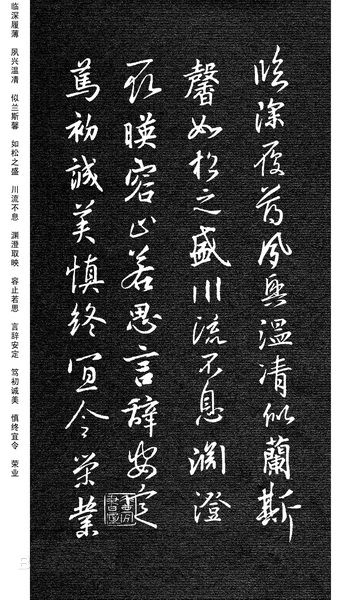 临深履薄 夙兴温凊 似兰斯馨 如松之盛 川流不息 渊澄取映 容止若思 言辞安定 笃初诚美 慎终宜令 荣业
臨深履薄夙興温凊似蘭斯
馨如松之盛川流不息渊澄
取暎容止若思言辞安定
篤初誠美慎终宜令榮業